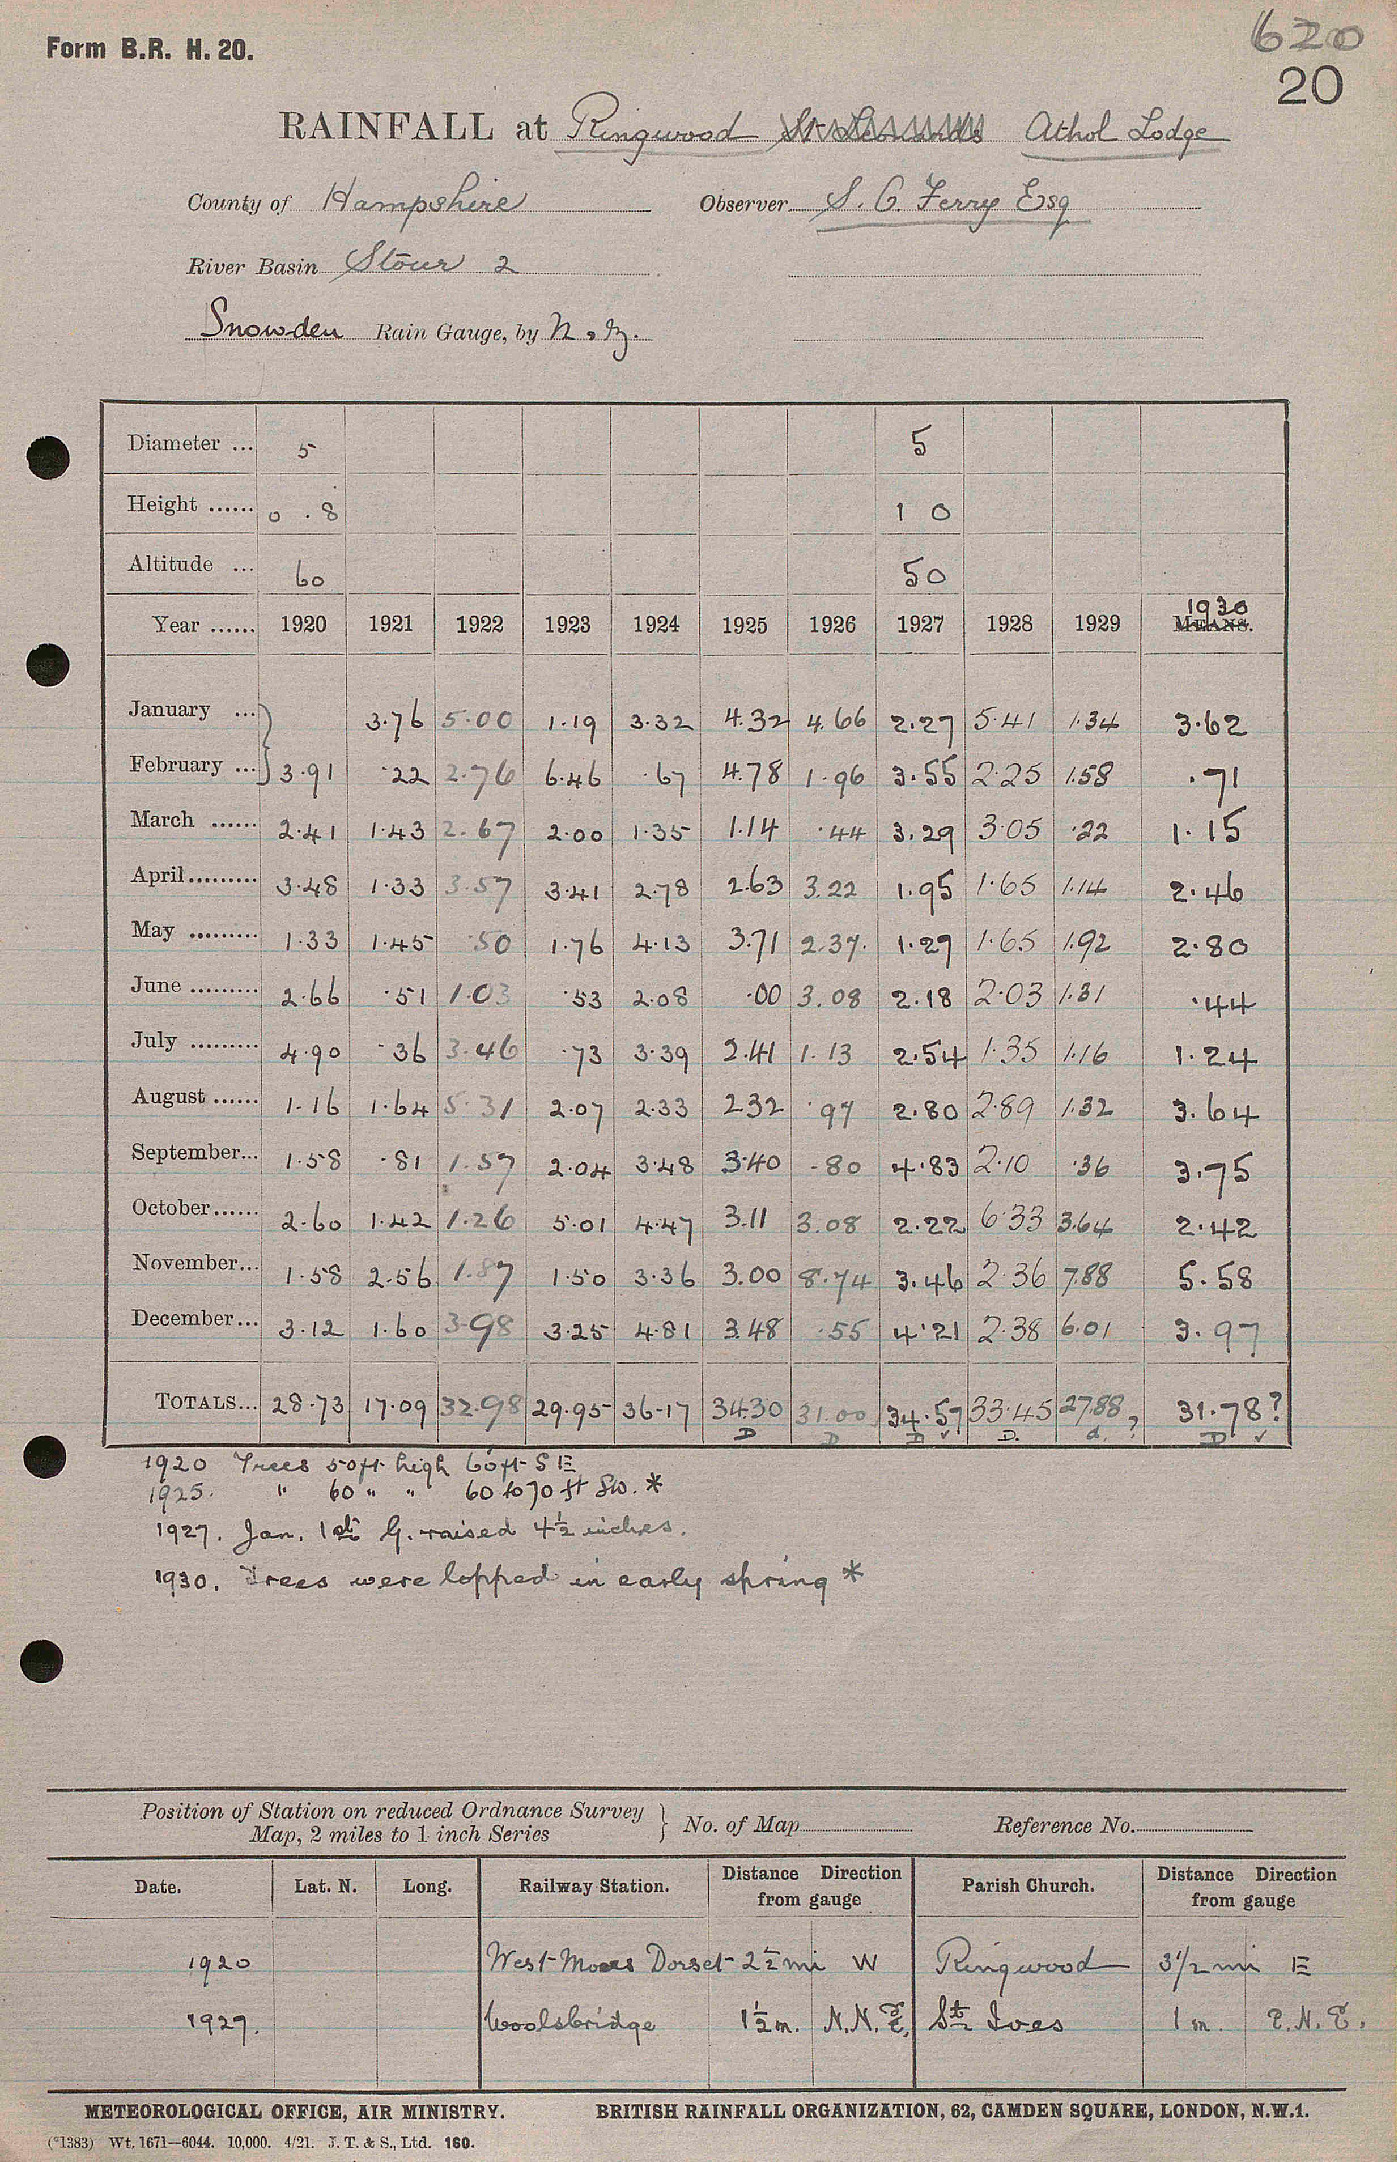 Form B.R. H. 20.
620
20
RAINFALL at Ringwood St Leonards Athol Lodge
County of Hampshire Observer S. G. Ferry Esq
River Basin Stour 2
Snowden Rain Gauge, by N. & Z.
Diameter ... 5 5
Height ...... 0 . 8 1 0
Altitude ... 60 50
1930
Year ...... 1920 1921 1922 1923 1924 1925 1926 1927 1928 1929 MEANS.
January ... 3.76 5.00 1.19 3.32 4.32 4.66 2.27 5.41 1.34 3.62
February ... 3.91 .22 2.76 6.46 .67 4.78 1.96 3.55 2.25 1.58 .71
March ...... 2.41 1.43 2.67 2.00 1.35 1.14 .44 3.29 3.05 .22 1.15
April ......... 3.48 1.33 3.57 3.41 2.78 2.63 3.22 1.95 1.65 1.14 2.46
May ......... 1.33 1.45 .50 1.76 4.13 3.71 2.37. 1.27 1.65 1.92 2.80
June ......... 2.66 .51 1.03 .53 2.08 .00 3.08 2.18 2.03 1.31 .44
July ......... 4.90 .36 3.46 .73 3.39 2.41 1.13 2.54 1.35 1.16 1.24
August ...... 1.16 1.64 5.31 2.07 2.33 2.32 .97 2.80 2.89 1.32 3.64
September... 1.58 .81 1.57 2.04 3.48 3.40 .80 4.83 2.10 .36 3.75
October ...... 2.60 1.42 1.26 5.01 4.47 3.11 3.08 2.22 6.33 3.64 2.42
November... 1.58 2.56 1.87 1.50 3.36 3.00 8.74 3.46 2.36 7.88 5.58
December... 3.12 1.60 3.98 3.25 4.81 3.48 .55 4.21 2.38 6.01 3.97
TOTALS... 28.73 17.09 32.98 29.95 36.17 34.30 31.00 34.57 33.45 27.88 ? 31.78?
D D D ✓ D. d. D ✓
1920 Trees 50ft high 60ft SE
1925. " 60 " " 60 to 70 ft SW. *
1927. Jan. 1st G. raised 4½ inches.
1930. Trees were lopped in early spring *
Position of Station on reduced Ordnance Survey
Map, 2 miles to 1 inch Series
No. of Map Reference No.
Date. Lat. N. Long. Railway Station. Distance Direction from gauge Parish Church. Distance Direction from gauge
1920 West Moors Dorset 2½ mi W Ringwood 3½ mi E
1927. Woolsbridge 1½ m. N.N.E. St Ives 1 m. E.N.E.
METEOROLOGICAL OFFICE, AIR MINISTRY. BRITISH RAINFALL ORGANIZATION, 62, CAMDEN SQUARE, LONDON, N.W.1.
(*1383) Wt. 1671—6044. 10,000. 4/21. J. T. & S., Ltd. 160.